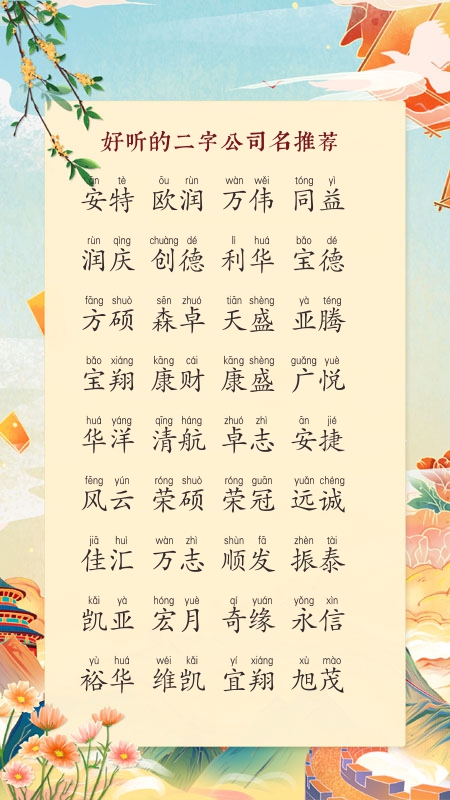 好听的二字公司名推荐
ān tè ōu rùn wàn wěi tóng yì
安特 欧润 万伟 同益
rùn qìng chuàng dé lì huá bǎo dé
润庆 创德 利华 宝德
fāng shuò sēn zhuó tiān shèng yà téng
方硕 森卓 天盛 亚腾
bǎo xiáng kāng cái kāng shèng guǎng yuè
宝翔 康财 康盛 广悦
huá yáng qīng háng zhuó zhì ān jié
华洋 清航 卓志 安捷
fēng yún róng shuò róng guān yuǎn chéng
风云 荣硕 荣冠 远诚
jiā huì wàn zhì shùn fā zhèn tài
佳汇 万志 顺发 振泰
kǎi yà hóng yuè qí yuán yǒng xìn
凯亚 宏月 奇缘 永信
yù huá wéi kǎi yí xiáng xù mào
裕华 维凯 宜翔 旭茂